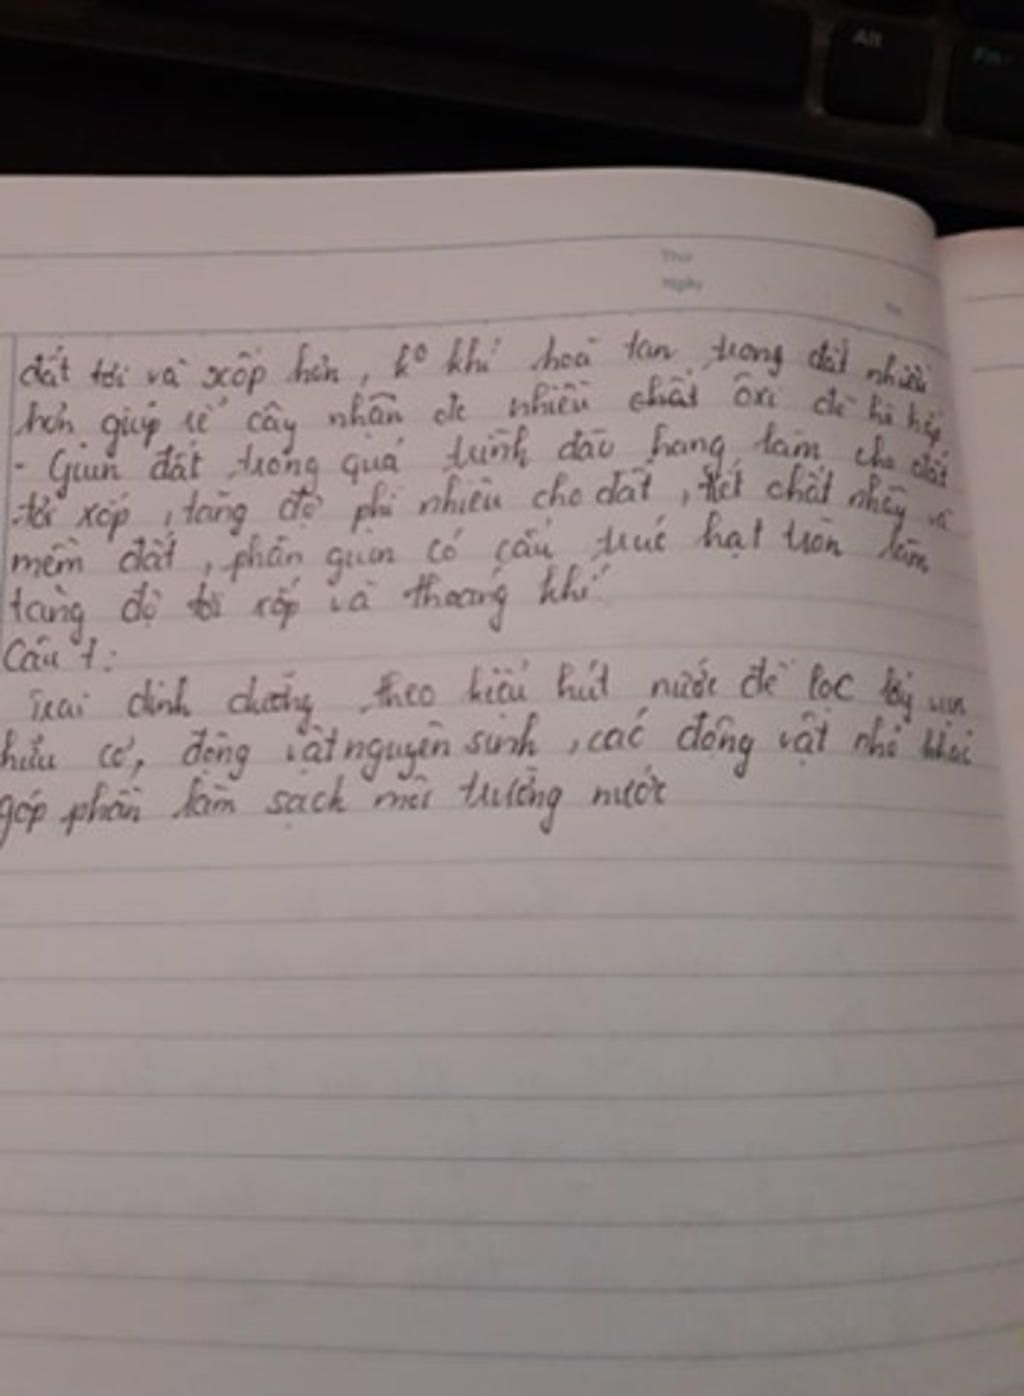 Alt
Fn
Thứ
Ngày
đất tơi và xốp hơn, ko khí hoà tan trong đất nhiều
hơn giúp rễ cây nhận đc nhiều chất ôxi để hô hấp
- Giun đất trong quá trình đào hang làm cho đất
tơi xốp, tăng độ phì nhiêu cho đất, tiết chất nhầy và
mềm đất, phân giun có cấu trúc hạt tròn làm
tăng độ tơi xốp và thoáng khí
Câu 7:
Trai dinh dưỡng theo kiểu hút nước để lọc lấy vụn
hữu cơ, động vật nguyên sinh, các động vật nhỏ khác
góp phần làm sạch môi trường nước